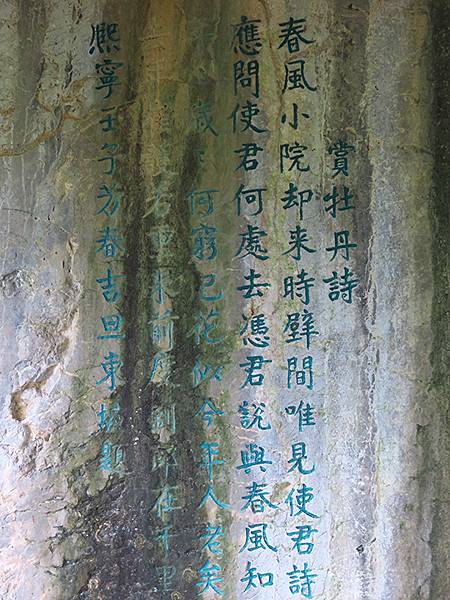 賞牡丹詩
春風小院却来時壁間唯見使君詩
應問使君何處去憑君說與春風知
歲〻何窮已花似今年人老矣
若重来前度劉郎在千里
熙寧壬子芳春吉旦東坡題